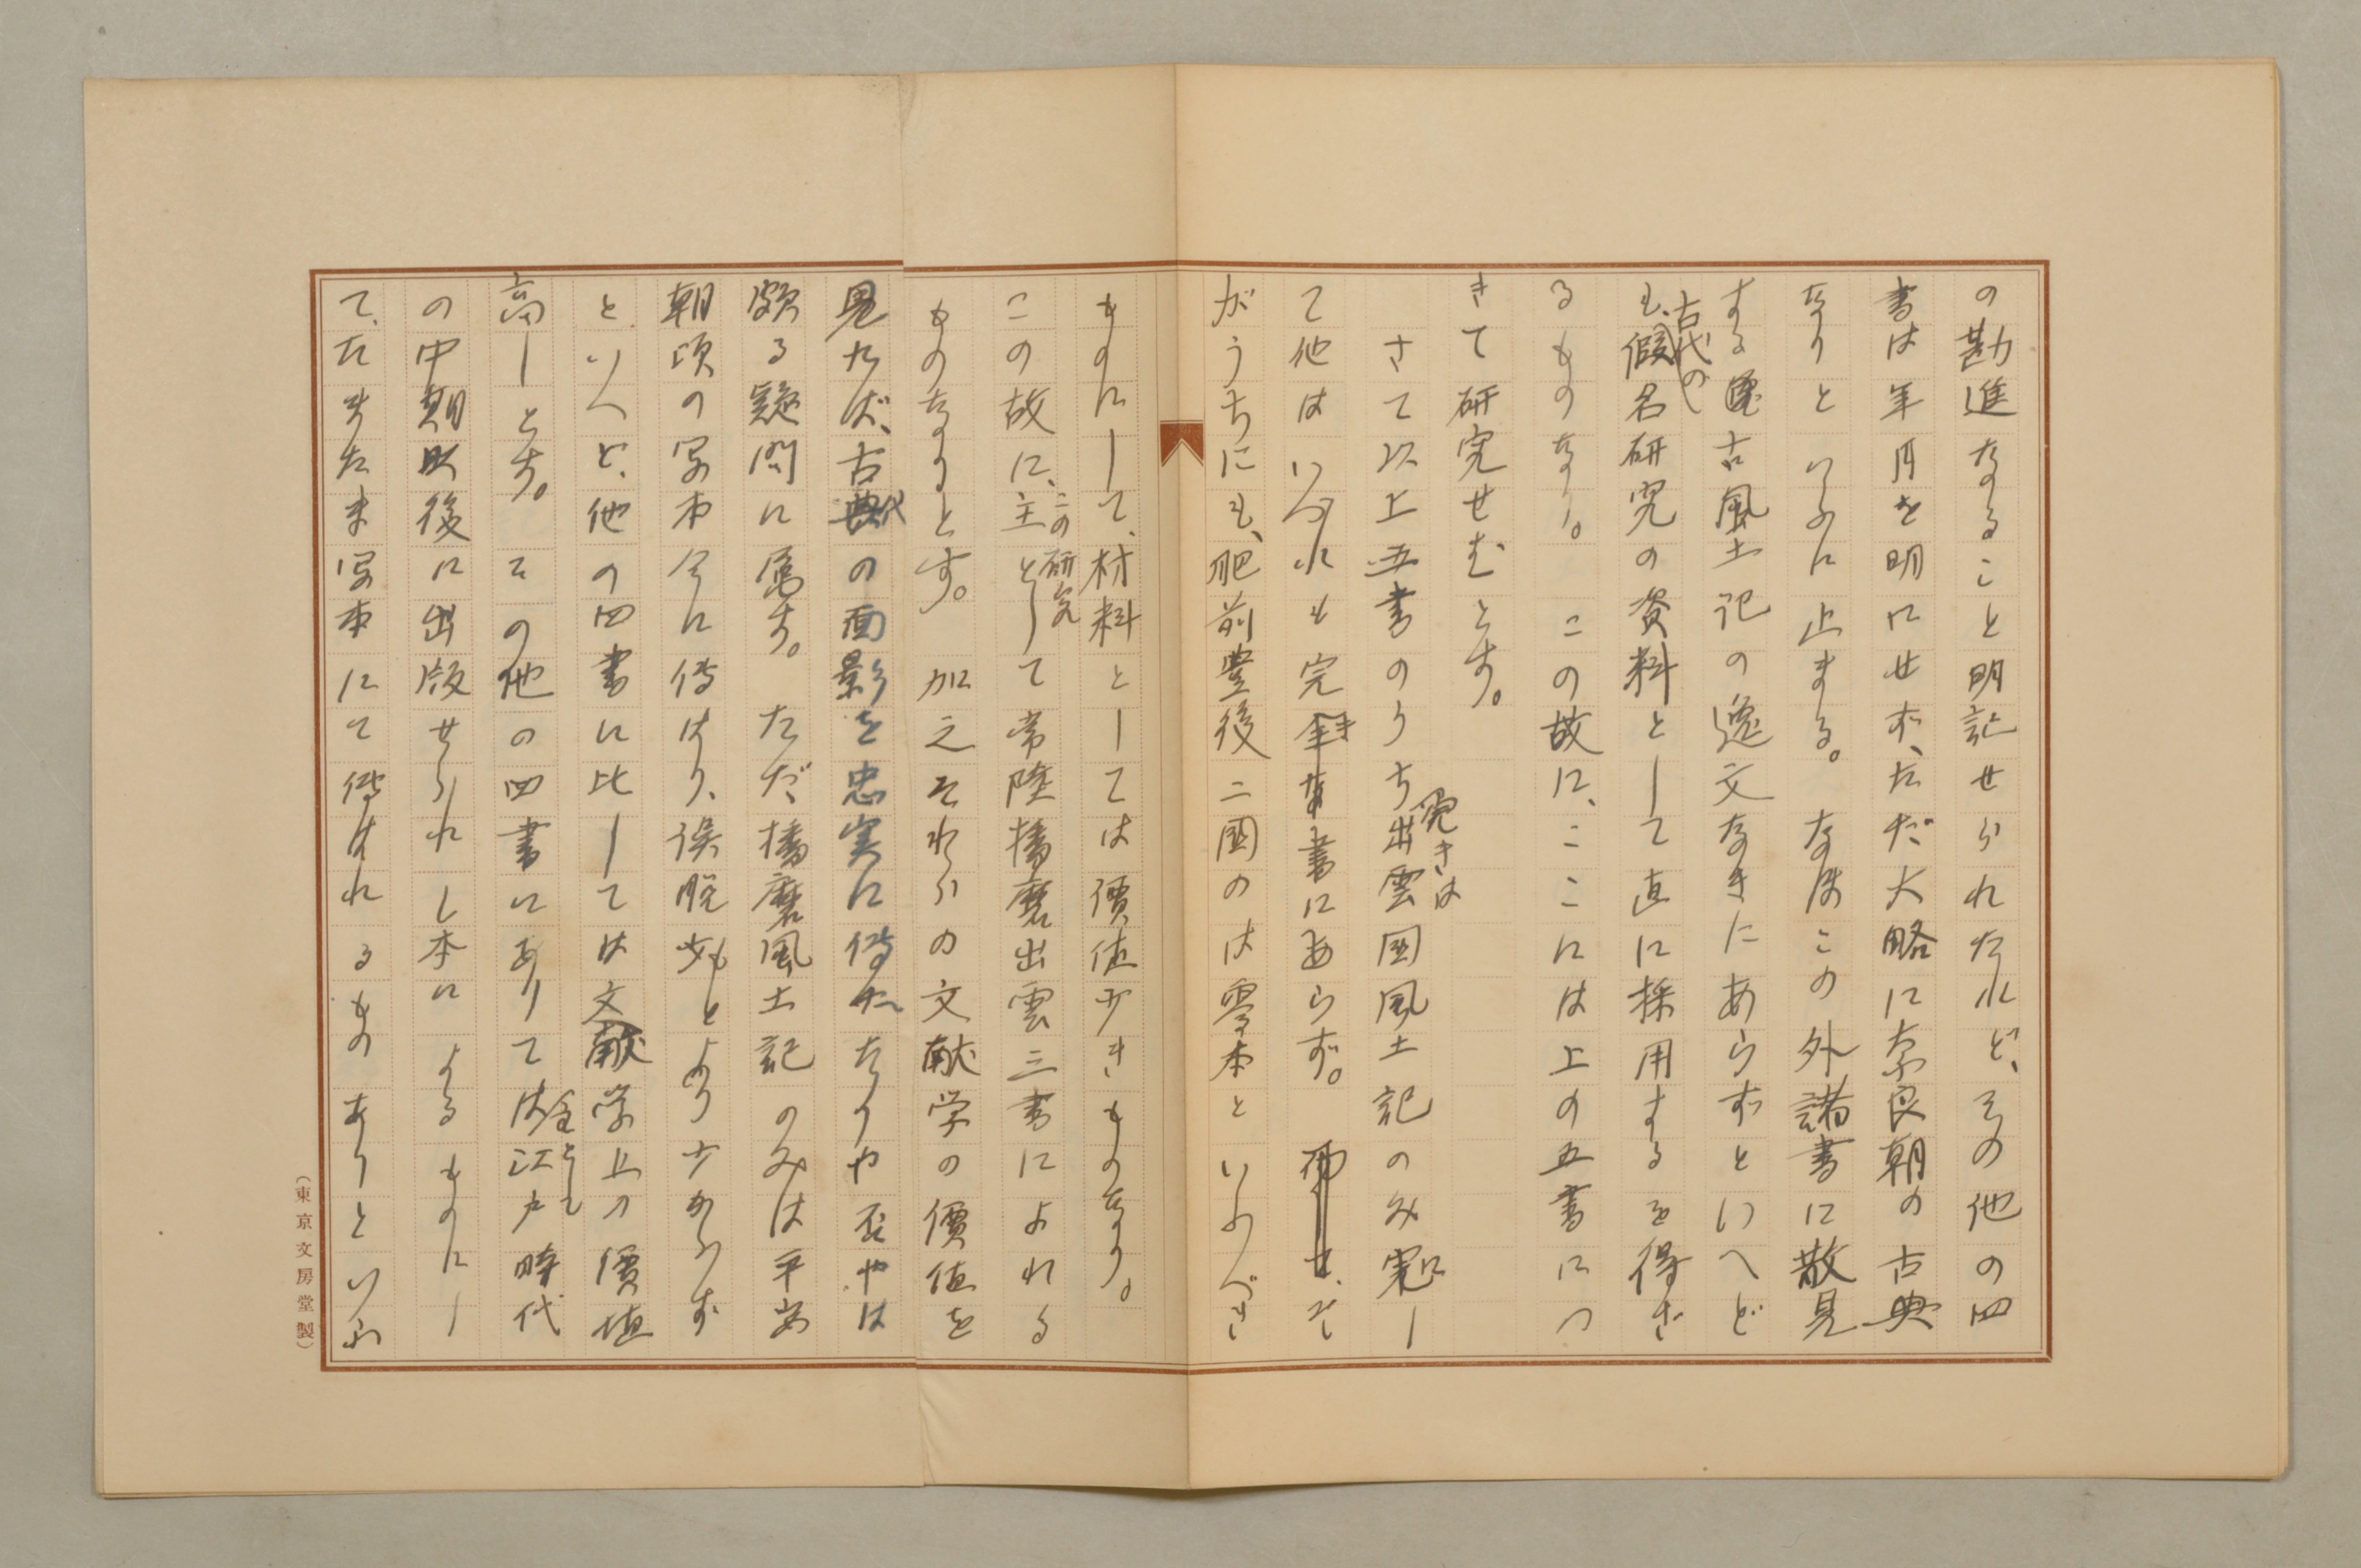 の勘進なること明記せられたれど、その他の四
書は年月を明にせず、ただ大略に奈良朝の古典
なりといふに止まる。なほこの外諸書に散見
する古風土記の逸文なきにあらずといへど
も、古代の假名研究の資料として直に採用するを得ざ
るものなり。この故に、ここには上の五書につ
きて研究せむとす。
さて以上五書のうち出雲国風土記のみ完きは
て他はいづれも完き書にあらず。そ
がうちにも、肥前豊後二國のは零本といふべき
ものにして、材料としては價値少きものなり。
この故に、この研究主として常陸播磨出雲三書によれる
ものなりとす。加之それらの文献学の價値を
見れば、古代の面影を忠実に傳へたりや否やは
頗る疑問に属す。ただ播磨風土記のみは平安
朝頃の写本今に傳はり、誤脱もとより少からず
といへど、他の四書に比しては文献学上の價値
高しとす。その他の四書にありては全として江戸時代
の中期以後に出版せられし本によるものにし
て、たまたま写本にて傳はれるものありといふ
(東京文房堂製)